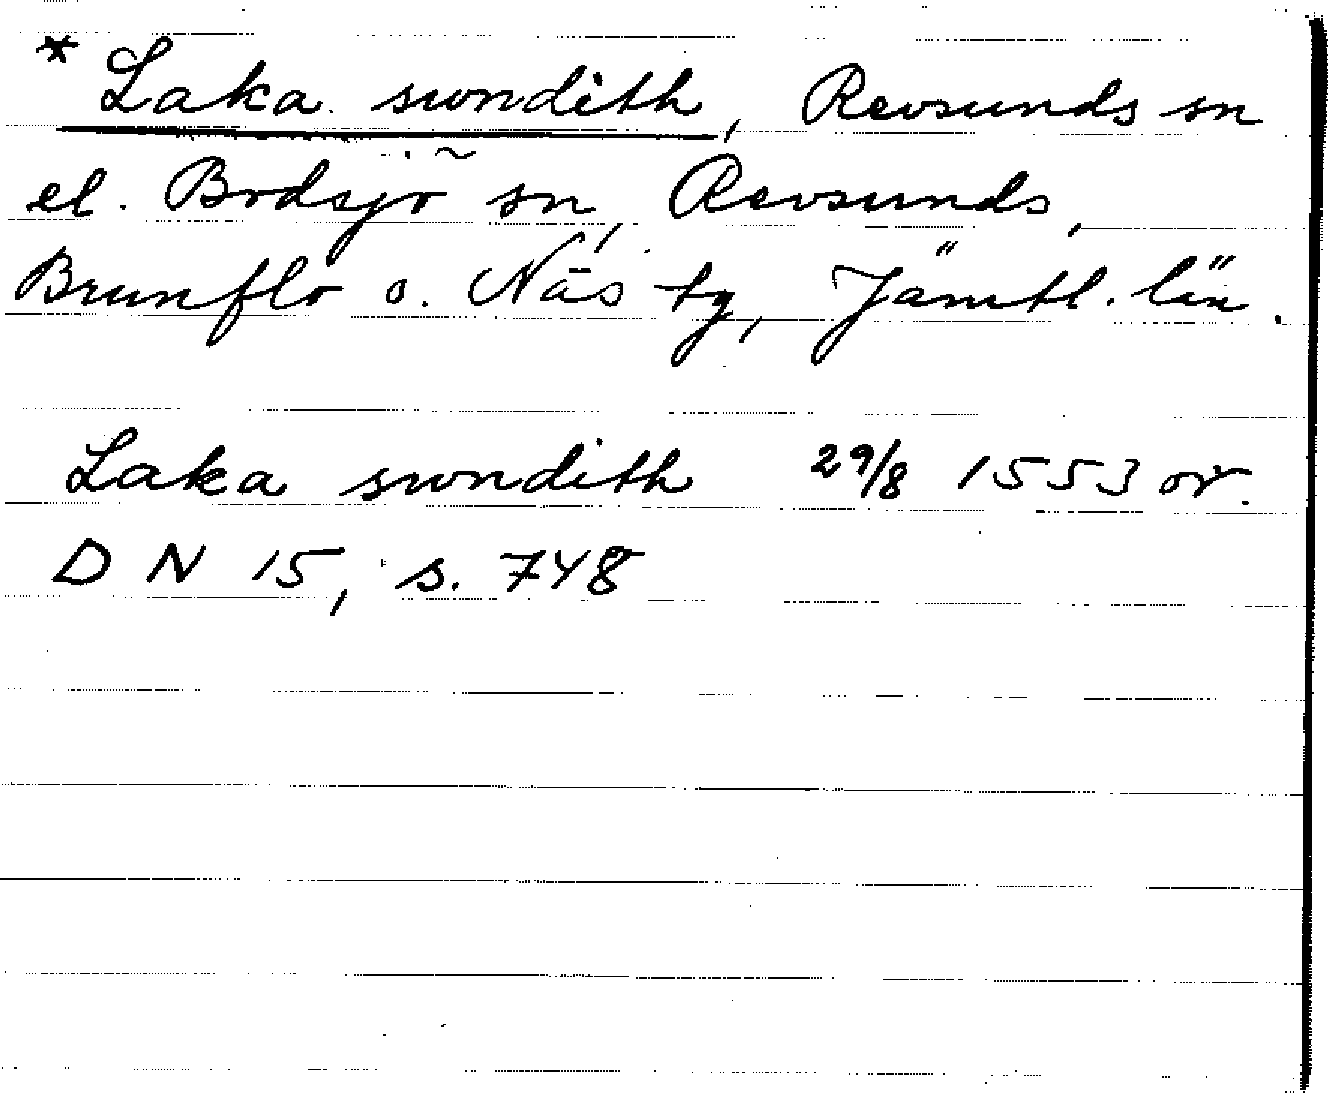 * Laka swndith, Revsunds sn
el. Bodsjö sn, Revsunds,
Brunflo o. Näs tg, Jämtl. län.
Laka swndith 29/8 1553 or.
DN 15, s. 748